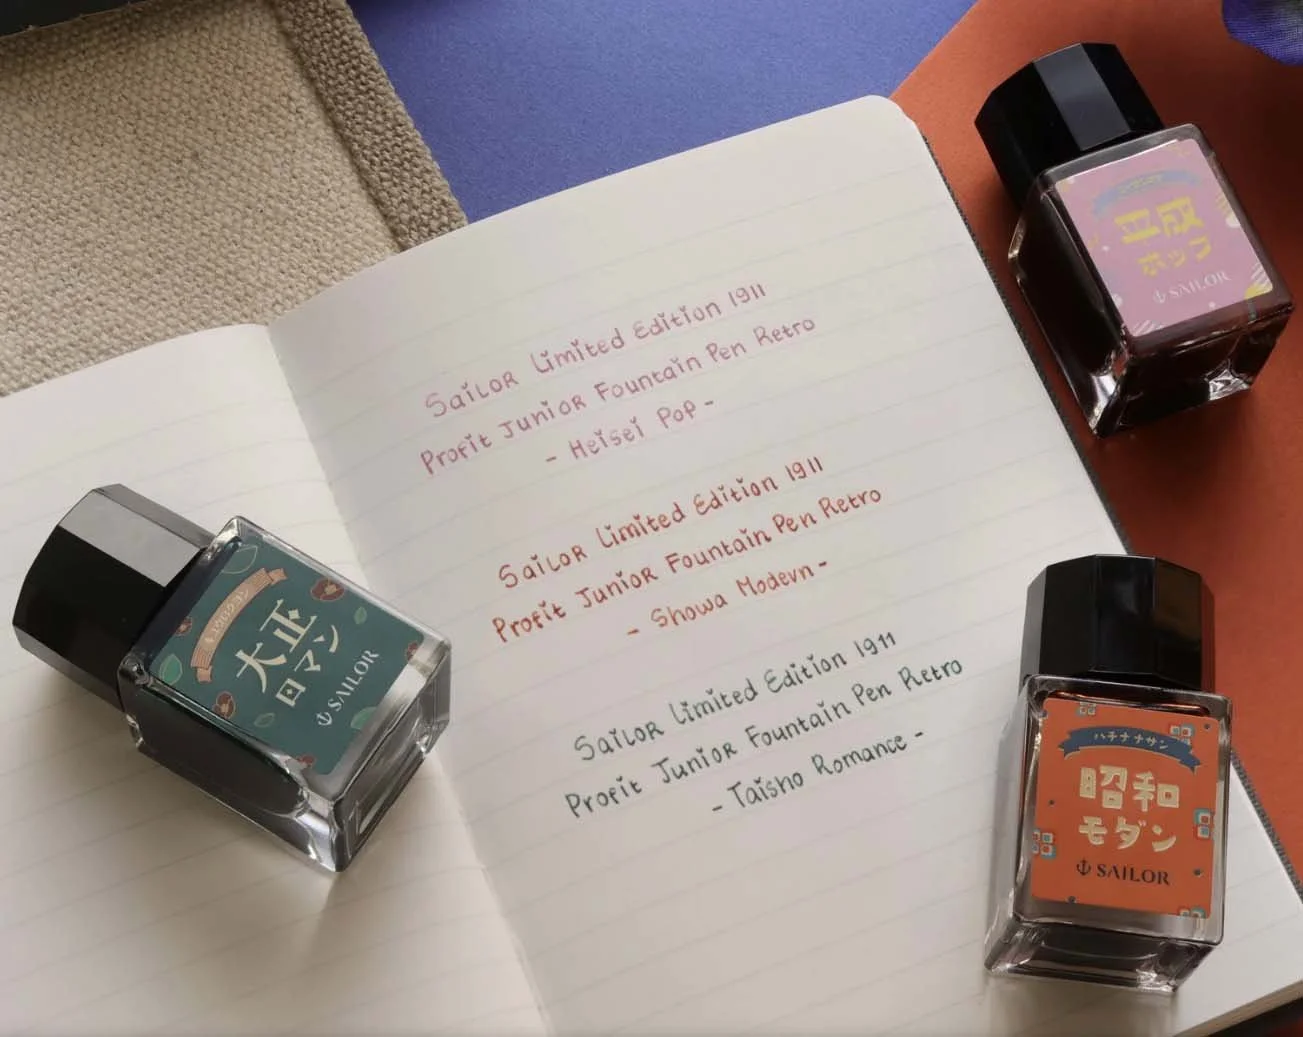 Sailor Limited Edition 1911
Profit Junior Fountain Pen Retro
- Heisei Pop -
Sailor Limited Edition 1911
Profit Junior Fountain Pen Retro
- Showa Modern -
Sailor Limited Edition 1911
Profit Junior Fountain Pen Retro
- Taisho Romance -
平成
ポップ
SAILOR
大正
ロマン
SAILOR
ハチナナサン
昭和
モダン
SAILOR